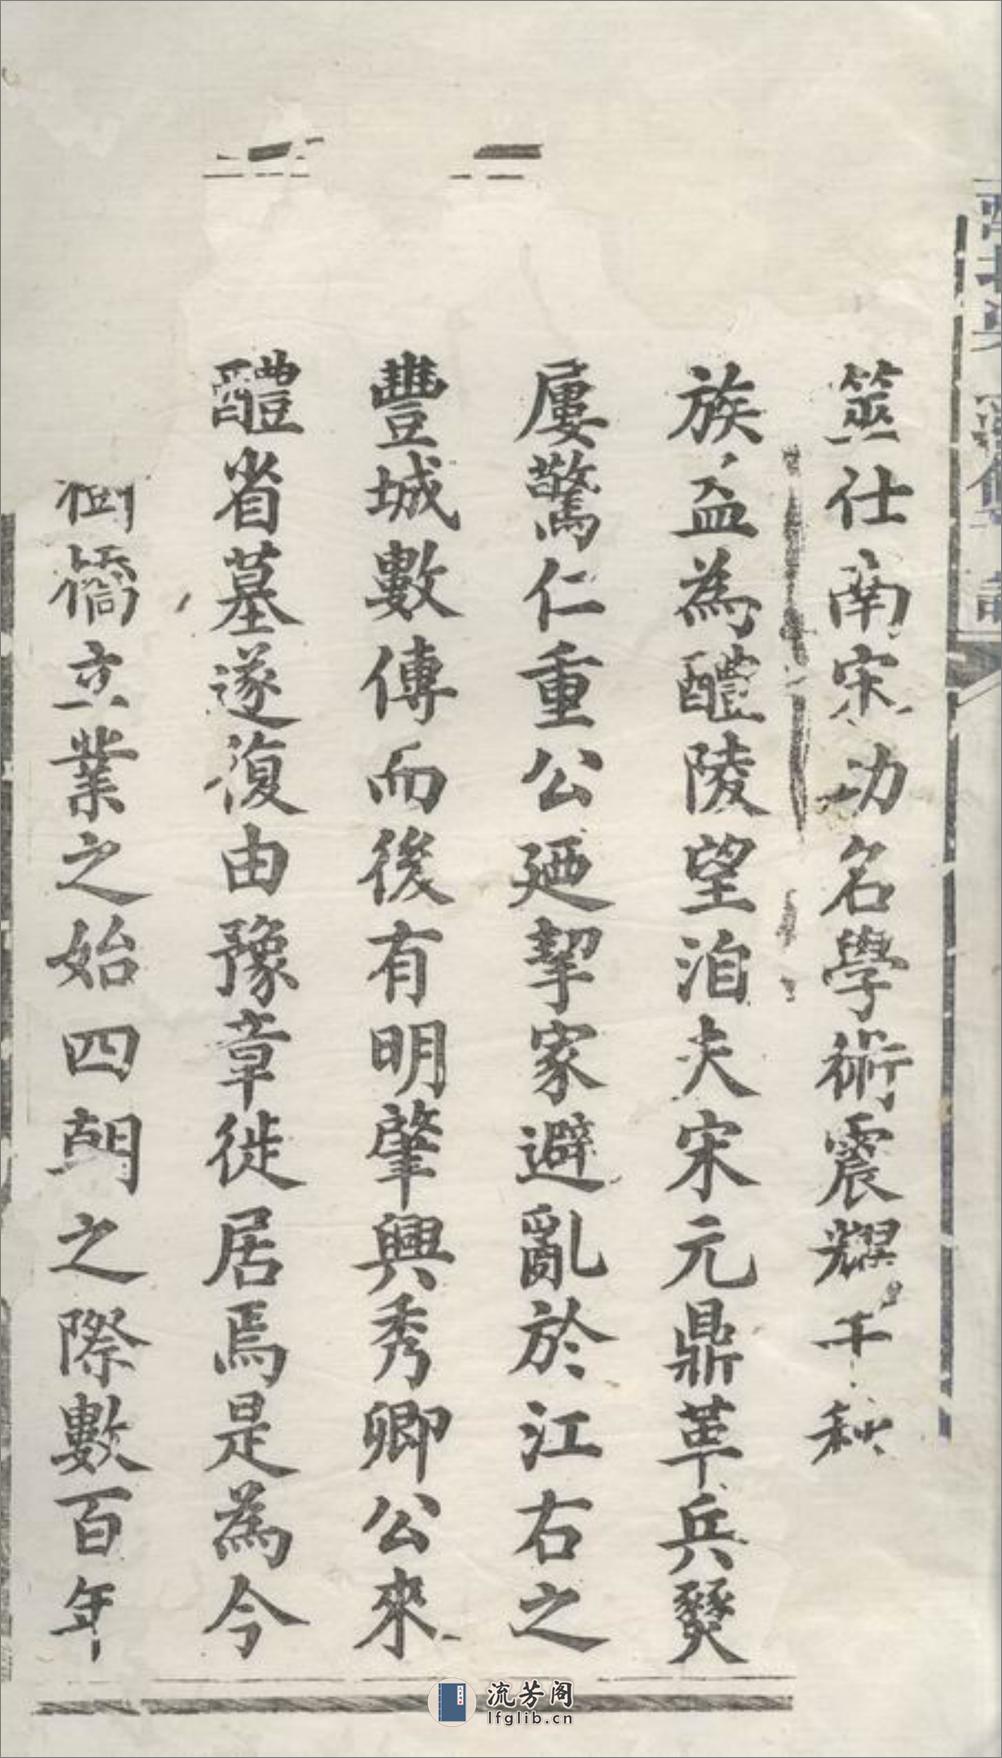 筮仕南宋功名學術震耀千秋
族益為醴陵望洎夫宋元鼎革兵燹
屢驚仁重公廼挈家避亂於江右之
豐城數傳而後有明肇興秀卿公來
醴省墓遂復由豫章徙居焉是為今
橋立業之始四朝之際數百年
流芳阁
lfglib.cn